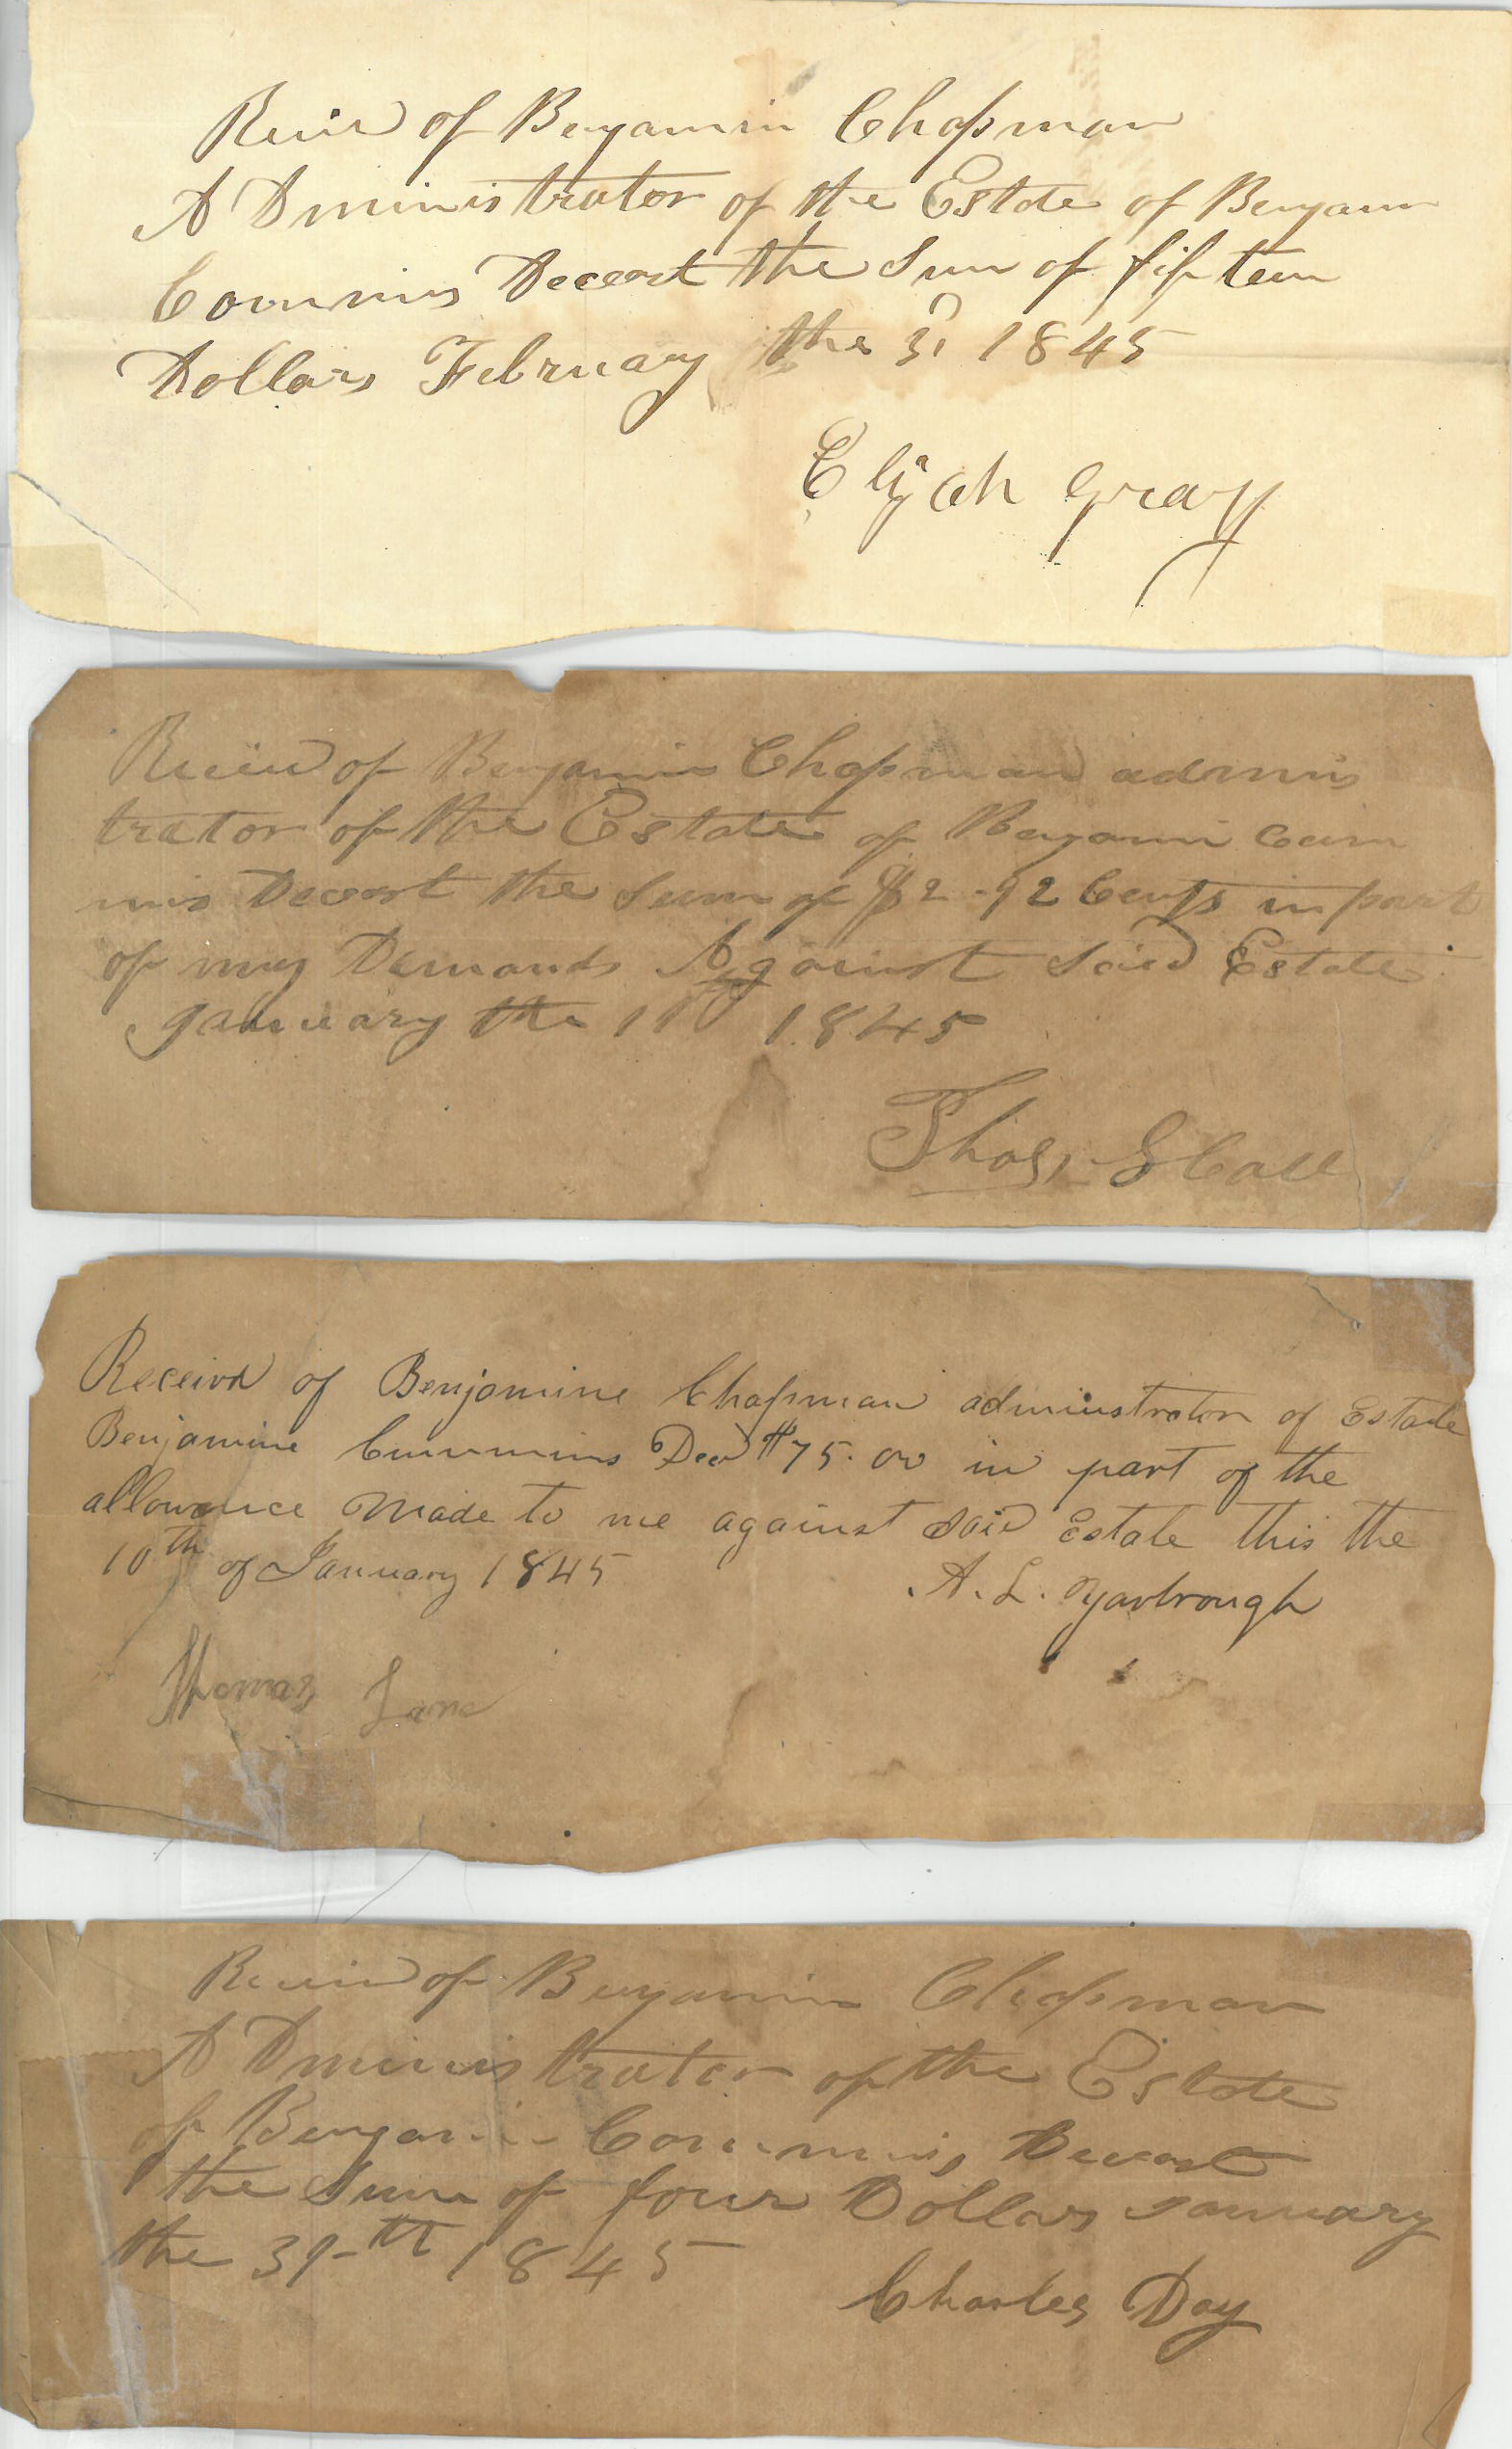 Receivd of Benjamin Chapman
ADministrator of the Estate of Benjamin
Commins Deceast the Sum of fifteen
Dollars February the 3 1845
Elijah Gray
Receivd of Benjamin Chapman adminis
trator of the Estate of Benjamin Cum
mins Deceast the Sum of $2-92 Cents in part
of my Demands Against Said Estate
January the 11 1845
Thos, Call
Receivd of Benjamine Chapman adminstrator of Estate
Benjamine Cummins Decd $75.00 in part of the
allowance Made to me against Said Estate this the
10th of January 1845
A. L. Yarbrough
Thomas Lane
Receivd of Benjamin Chapman
ADministrator of the Estate
of Benjamin Commins Deceast
the Sum of four Dollars January
the 31-th 1845
Charles Day